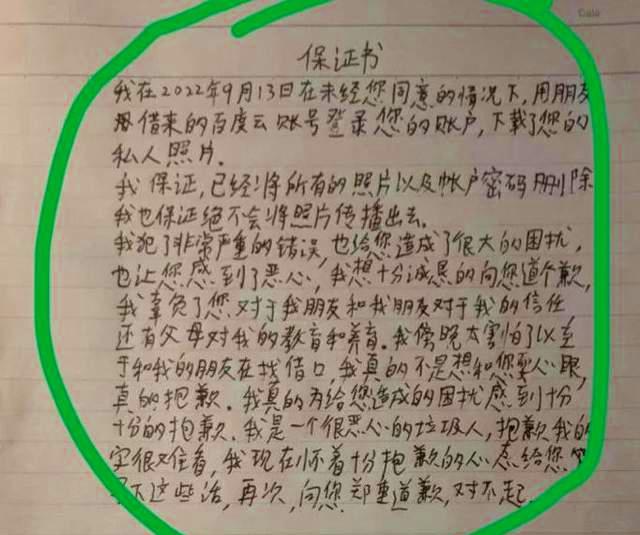 Date
保证书
我在2022年9月13日在未经您同意的情况下,用朋友
借来的百度云账号登录您的账户,下载了您的
私人照片。
我保证,已经将所有的照片以及帐户密码删除
我也保证绝不会将照片传播出去。
我犯了非常严重的错误,也给您造成了很大的困扰,
也让您感到了恶心,我想十分诚恳的向您道个歉,
我辜负了您对于我朋友和我朋友对于我的信任
还有父母对我的教育和养育。我傍晚太害怕了以至
于和我的朋友在找借口,我真的不是想和您耍心眼,
真的抱歉。我真的为给您造成的困扰感到十分
十分的抱歉。我是一个很恶心的垃圾人,抱歉我的
字很难看,我现在怀着十分抱歉的心意给您写
下这些话,再次,向您郑重道歉,对不起。